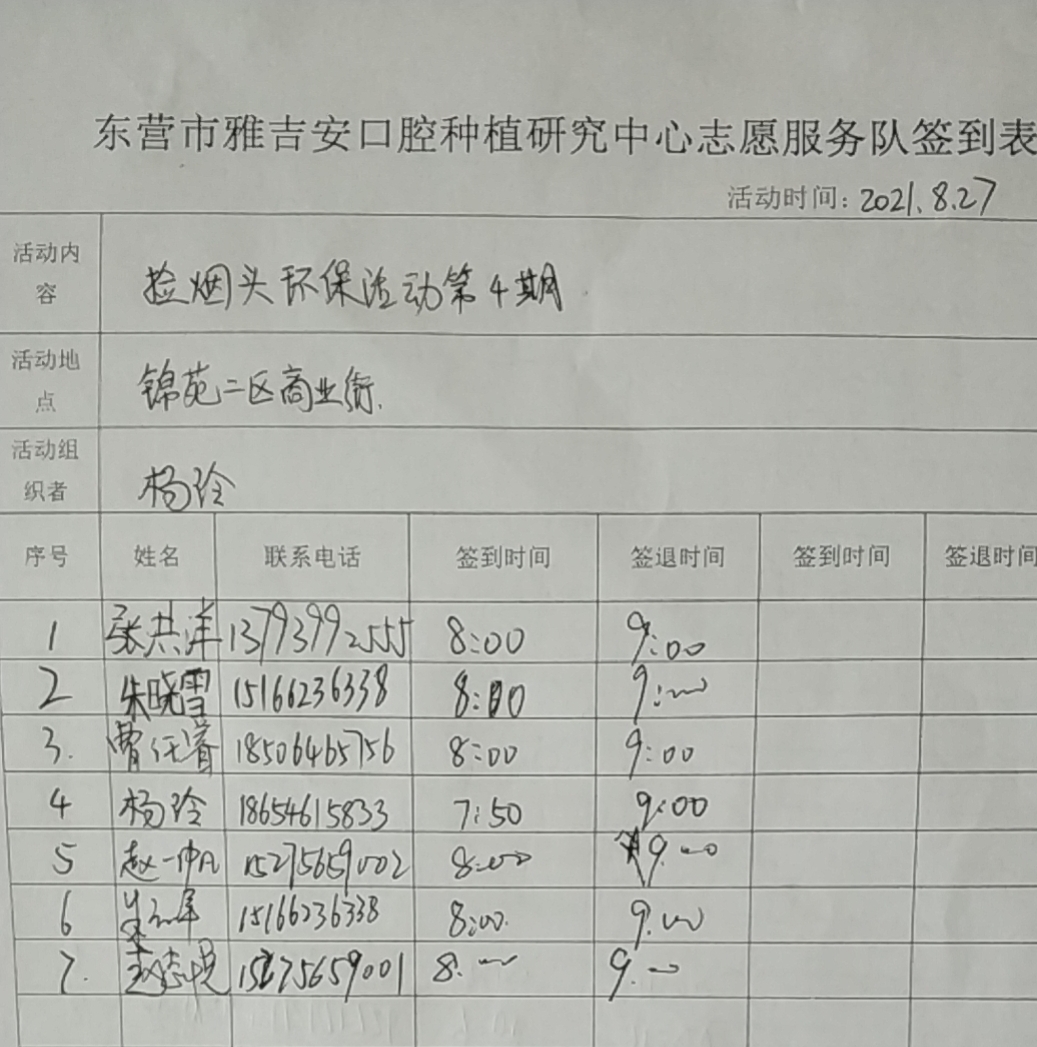 东营市雅吉安口腔种植研究中心志愿服务队签到表
活动时间: 2021.8.27
活动内容 捡烟头环保活动第4期
活动地点 锦苑二区商业街.
活动组织者 杨玲
序号 姓名 联系电话 签到时间 签退时间 签到时间 签退时间
1 张洪洋 13793992555 8:00 9:00
2 朱晓雪 15166236338 8:00 9:00
3. 曹任睿 18506465756 8:00 9:00
4 杨玲 18654615833 7:50 9:00
5 赵一帆 15275659002 8:00 9:00
6 15166236338 8:00 9:00
7. 15275659001 8:00 9:00